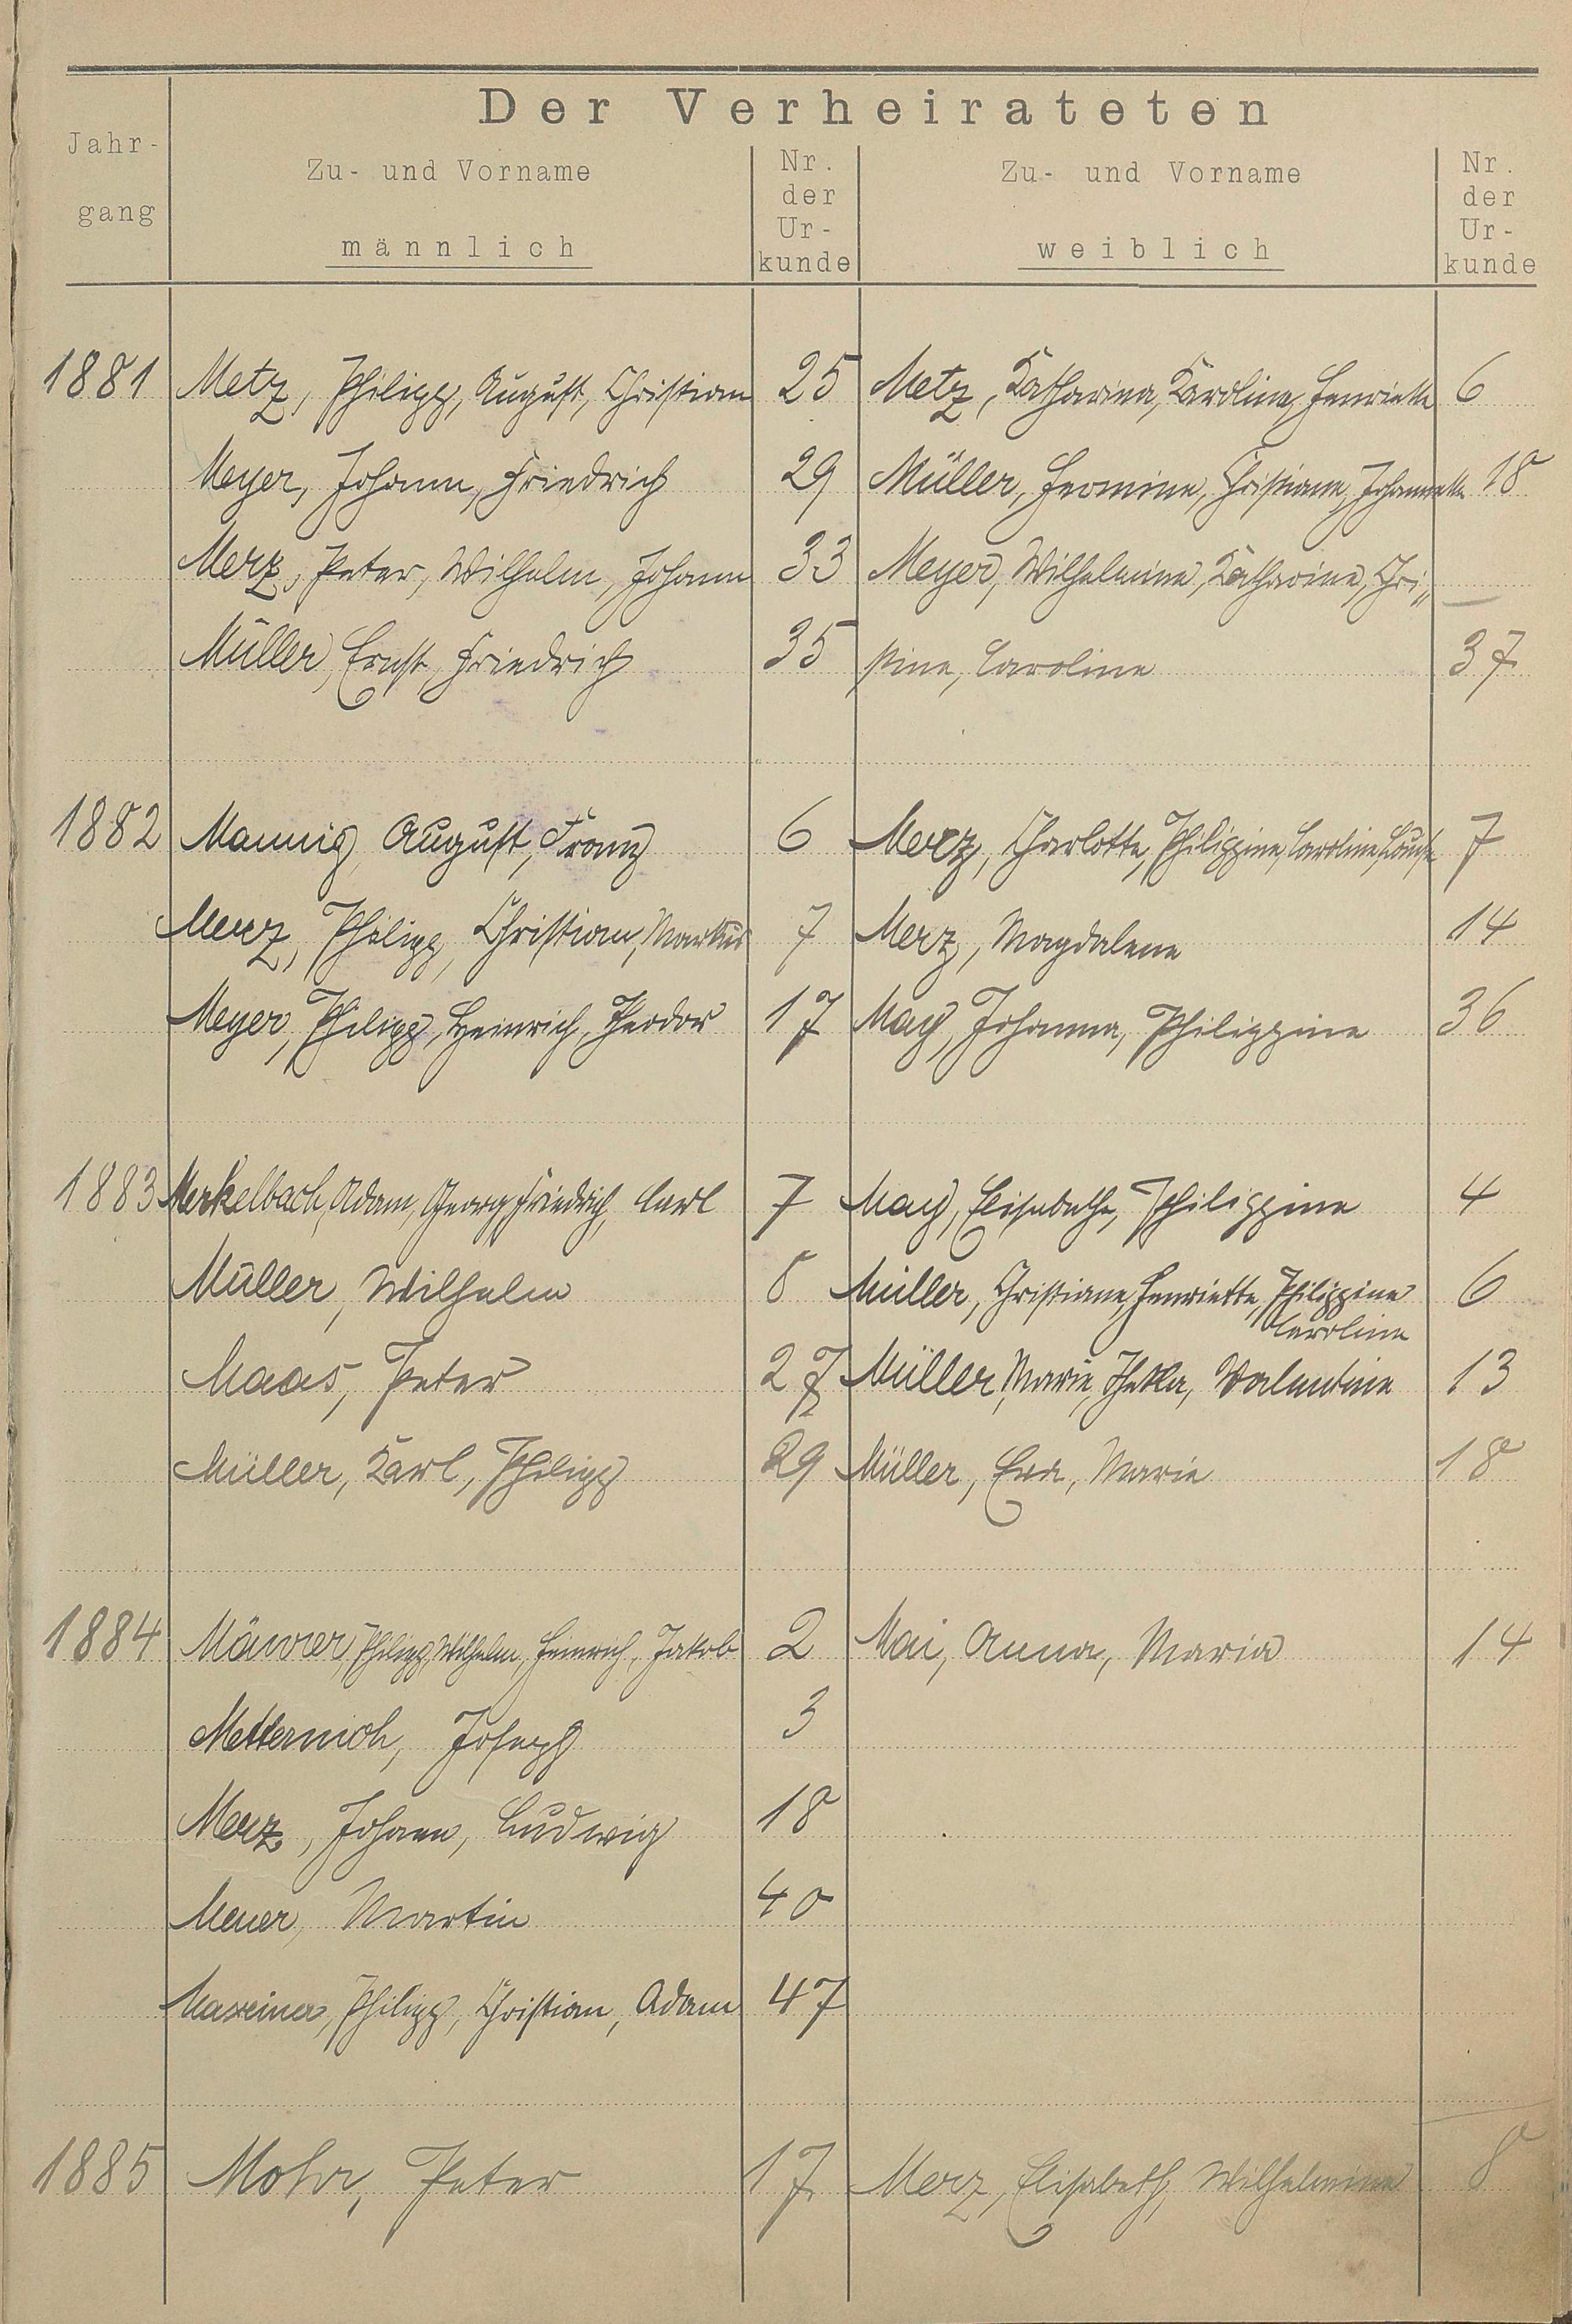 Der Verheirateten
Jahr-
gang
Zu- und Vorname
männlich
Nr.
der
Ur-
kunde
Zu- und Vorname
weiblich
Nr.
der
Ur-
kunde
1881 Metz, Philipp, August, Christian 25 Metz, Katharina, Karoline, Henriette 6
Meyer, Johann, Friedrich 29 Müller, Hermine, Christiane, Johannette 18
Merz, Peter, Wilhelm, Johann 33 Meyer, Wilhelmine, Katharine, Chri„
Müller, Ernst, Friedrich 35 stine, Caroline 37
1882 August, Franz 6 Merz, Charlotte, Philippine, Caroline, Louise 7
Merz, Philipp, Christian, Markus 7 Merz, Magdalene 14
Meyer, Philipp, Heinrich, Theodor 17 May, Johanna, Philippine 36
1883 Merkelbach, Adam, Georg, Friedrich, Carl 7 May, Elisabethe, Philippine 4
Müller, Wilhelm 8 Müller, Christiane, Henriette, Philippine 6
Caroline
Maas, Peter 27 Müller, Marie, Thekla, Valentine 13
Müller, Karl, Philipp 29 Müller, Eva, Marie 18
1884 Mäurer, Philipp, Wilhelm, Heinrich, Jakob 2 Mai, Anna, Maria 14
Metternich, Joseph 3
Merz, Johann, Ludwig 18
Meuer, Martin 40
Maxeiner, Philipp, Christian, Adam 47
1885 Mohr, Peter 17 Merz, Elisabeth, Wilhelmine 8